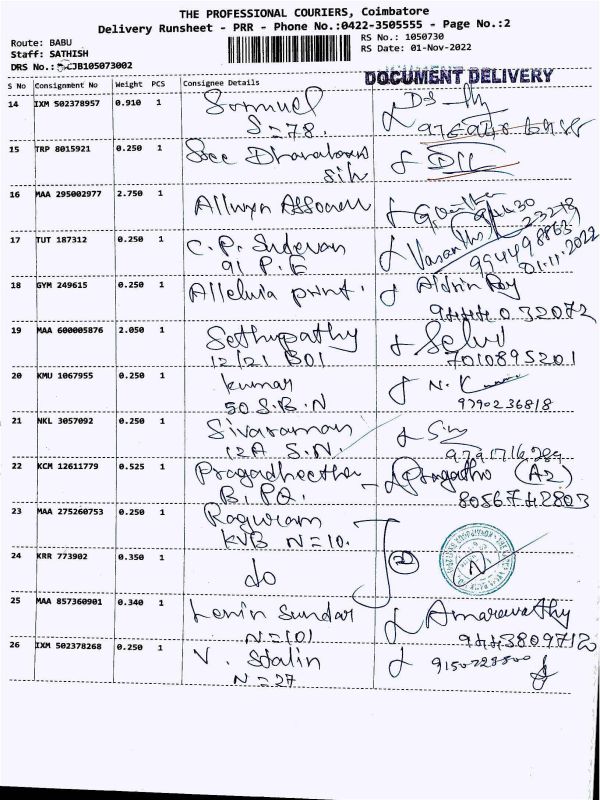 THE PROFESSIONAL COURIERS, Coimbatore
Delivery Runsheet - PRR - Phone No.:0422-3505555 - Page No.:2
Route: BABU
Staff: SATHISH
DRS No.: CJB105073002
RS No.: 1050730
RS Date: 01-Nov-2022
DOCUMENT DELIVERY
S No Consignment No Weight PCS Consignee Details
14 IXM 502378957 0.910 1 Somuel
S=78.
15 TRP 8015921 0.250 1
16 MAA 295002977 2.750 1
17 TUT 187312 0.250 1 C.P. Sudevan Vasantha
91 P.E 9944988637
01.11.2022
18 GYM 249615 0.250 1 Alleluia print. Aldrin Roy
9444032072
19 MAA 600005876 2.050 1 Sethupathy Selvi
12/21 B01 7010895201
20 KMU 1067955 0.250 1 kumar N. K
50 S.B.N 9790236818
21 NKL 3057092 0.250 1 Sivaraman
12A S.N. 9791716289
22 KCM 12611779 0.525 1 Pragadheetha Pragatha (A2)
B. P.Q. 8056742803
23 MAA 275260753 0.250 1 Raguram
KVB N=10.
24 KRR 773902 0.350 1 do
25 MAA 857360901 0.340 1 Lenin Sundar Amaravathy
N=101 9443809712
26 IXM 502378268 0.250 1 V. Stalin
N=27